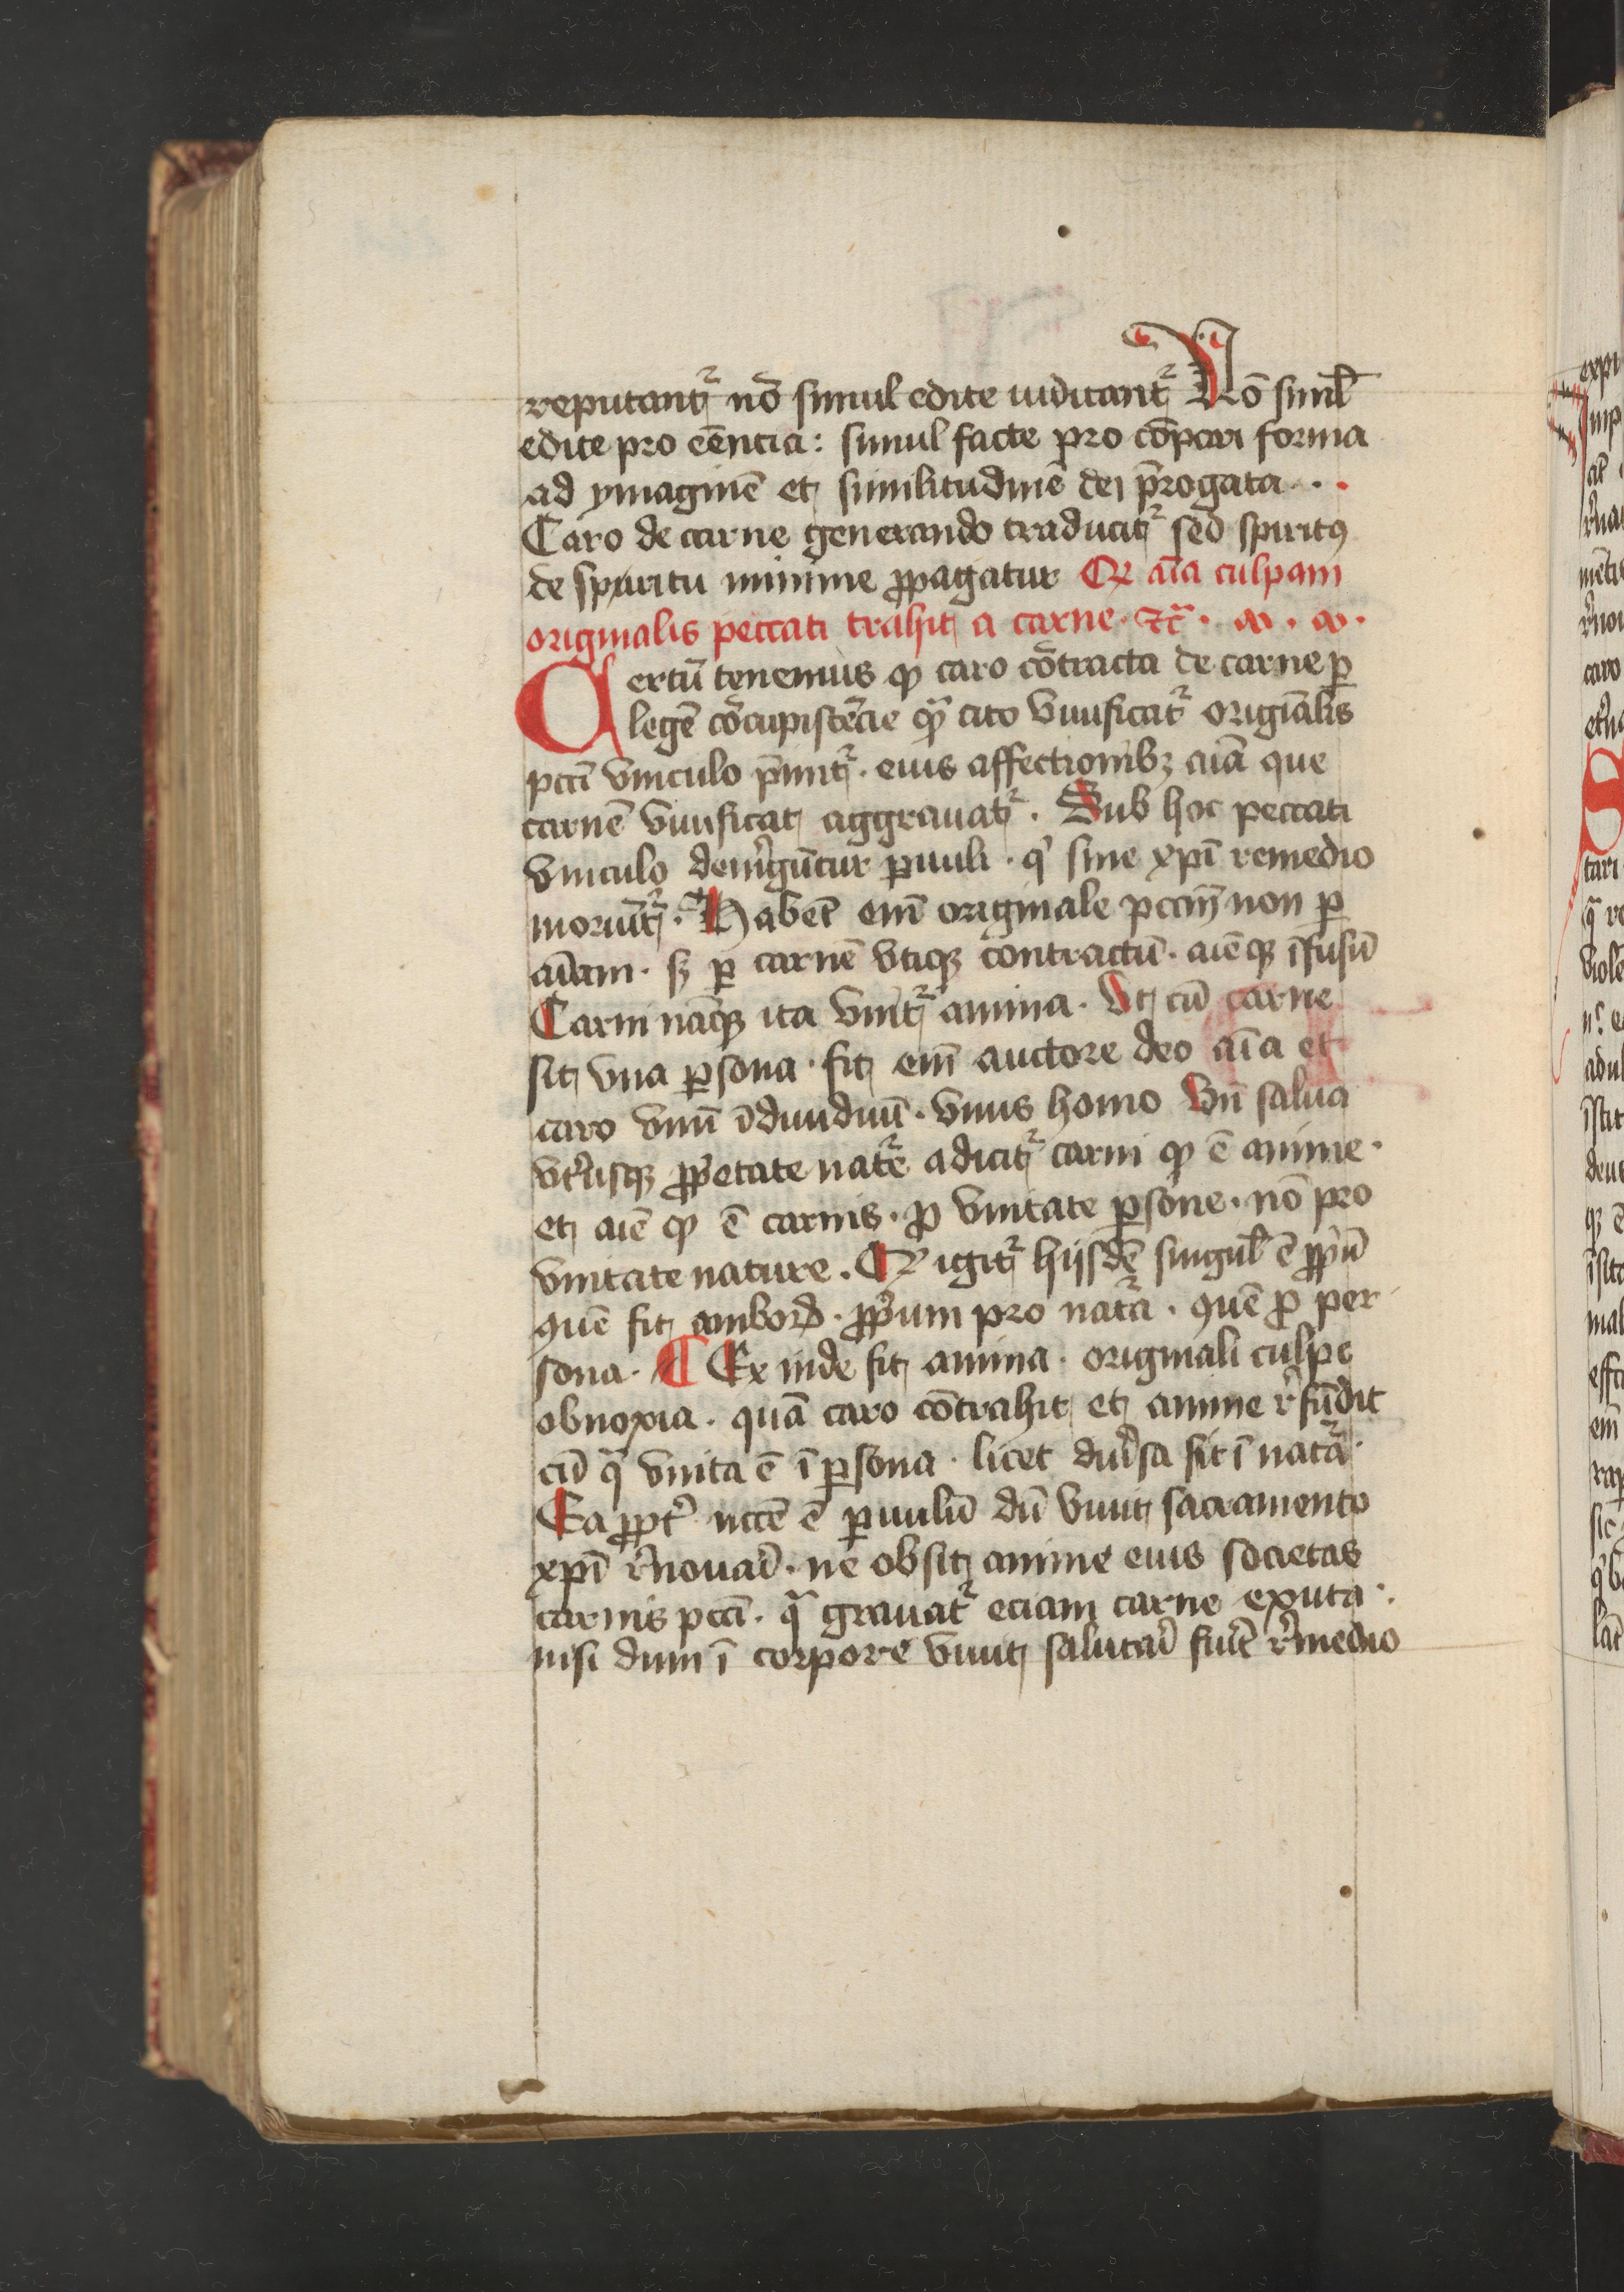 reputantʳ nō simul edite iudicantʳ Nō siml̄
edite pro eēncia: simul facte pro cōpari forma
ad ymaginē et similitudinē dei p̄rogata ..
Caro de carne generando traducitʳ sed spiritꝰ
de spiritu minime ꝓpagatur Qꝫ aīa culpam
originalis peccati trahit a carne · ⁊c̄ ·
Certū tenemus ꝙ caro cōtracta de carne ꝑ
legē cōcupiscēcie ꝙ̄ cito viuificatʳ origīalis
pccī vinculo p̄mitʳ · eius affectionibꝫ aiā que
carnē viuificat aggrauatʳ · Sub hoc peccati
vinculo dem̓gūtur ꝑuuli · qͥ sine xp̄i remedio
moriūtʳ · Habēt em̄ originale pccm̄ non ꝑ
aīam · sꝫ ꝑ carnē vtiqꝫ contractū · aieqꝫ īfusū
Carni nāqꝫ ita vnitʳ anima · Vt cū carne
sit vna ꝑsona · fit em̄ auctore deo aīa et
caro vnū īdiuiduū · vnus homo Vn̄ salua
vtͥusqꝫ ꝓpͥetate natʳe adicitʳ carni ꝙ ē anime ·
et aiē ꝙ ē carnis · ꝓ vnitate ꝑsone · nō pro
vnitate nature · Qꝫ igitʳ hijsdē singul̄ ē ꝓpͥū
quē fit amboꝝ · ꝓpͥum pro natʳa · quē ꝓ per
sona · ¶ Ex inde fit anima · originali culpe
obnoxia · quā caro cōtrahit et anime r̓fūdit
cū qͣ vnita ē ī ꝑsona · licet diu̓sa sit ī natʳa ·
Ea ꝓpt̓ nccē ē ꝑuulū dū viuit sacramento
xp̄i r̓nouari · ne obsit anime eius societas
carnis pccī · qͣ grauatʳ eciam carne exuta ·
nisi dum ī corpore viuit salutari fuīt r̓medio